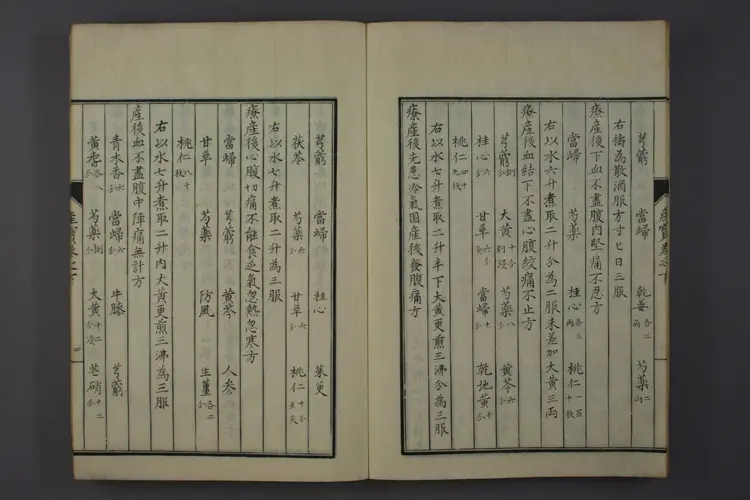 芎藭 當歸 乾姜各二兩 芍藥二兩
右擣為散酒服方寸匕日三服
療產後下血不盡腹內堅痛不忍方
當歸 芍藥 桂心各三兩 桃仁一百十枚
右以水六升煮取二升分為二服未差加大黃三兩
療產後血結下不盡心腹絞痛不止方
芎藭 大黃十分 芍藥八分 黃芩六分
桂心六分 甘草六分 當歸十分 乾地黃十分
桃仁四十九枚
右以水七升煮取二升半下大黃更煎三沸分為三服
療產後先患冷氣因產後發腹痛方
產寶卷之下
芎藭 當歸 桂心 茱萸
茯苓 芍藥六分 甘草六分 桃仁十分
右以水七升煮取二升為三服
療產後心腹切痛不能食乏氣忽熱忽寒方
當歸 芎藭 黃芩 人參
甘草 芍藥 防風 生薑各二分
桃仁八十枚
右以水七升煮取二升內大黃更煎三沸為三服
產後血不盡腹中陣痛無計方
青木香六分 當歸六分 牛膝 芎藭
黃香各八分 芍藥 大黃十二分 芒硝十二分
產寶卷之下